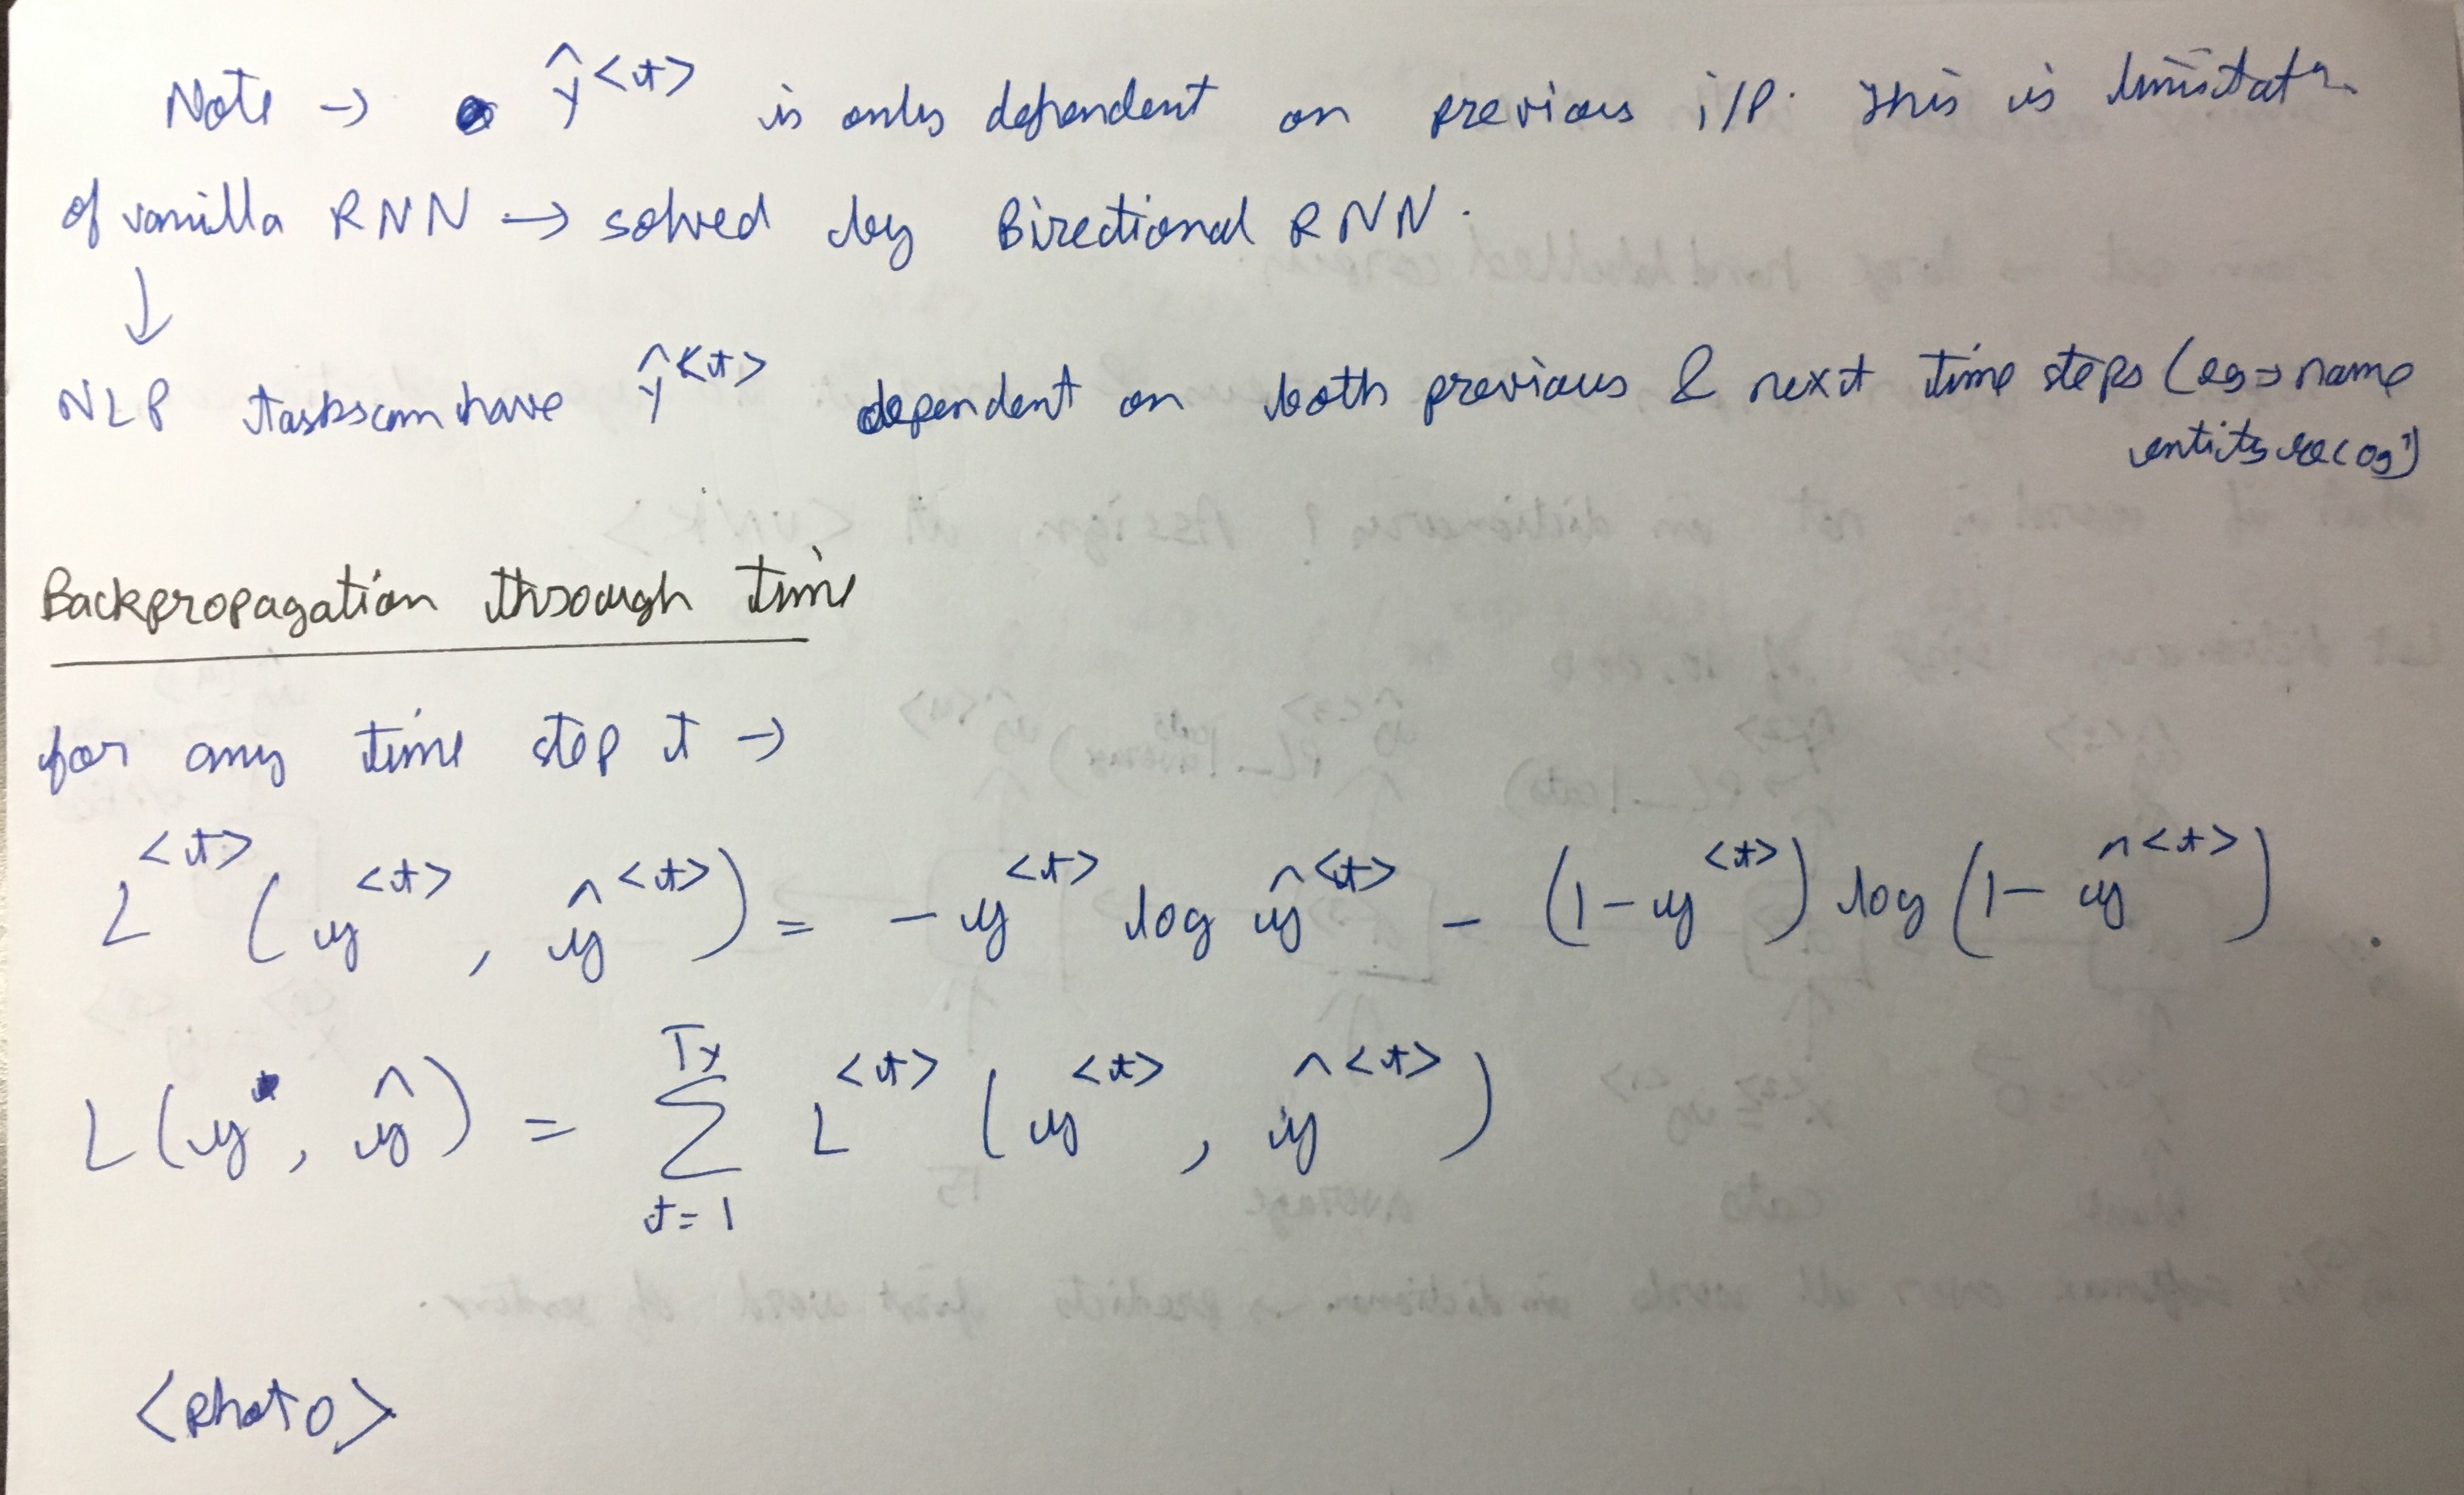 Note → ŷ<t> is only dependent on previous i/p. This is limitatn
of vanilla RNN → solved by Birectional RNN.
↓
NLP tasks can have ŷ<t> dependent on both previous & next time steps (eg → name
entity recogn)
Backpropagation through time
for any time step t →
L<t> (y<t>, ŷ<t>) = - y<t> log ŷ<t> - (1-y<t>) log (1- ŷ<t>)
L(y, ŷ) = Σ_{t=1}^{Tx} L<t> (y<t>, ŷ<t>)
<photo>